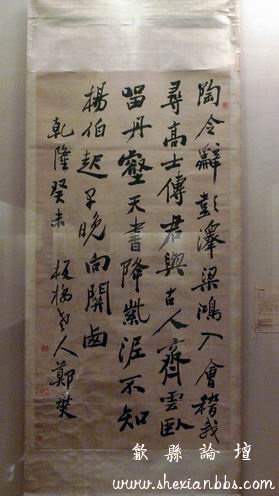 陶令辭彭澤梁鴻入會稽我
尋高士傳君與古人齊雲臥
留丹壑天書降紫泥不知
楊伯起早晚向關西
乾隆癸未 板橋老人鄭燮
歙縣論壇
www.shexianbbs.com